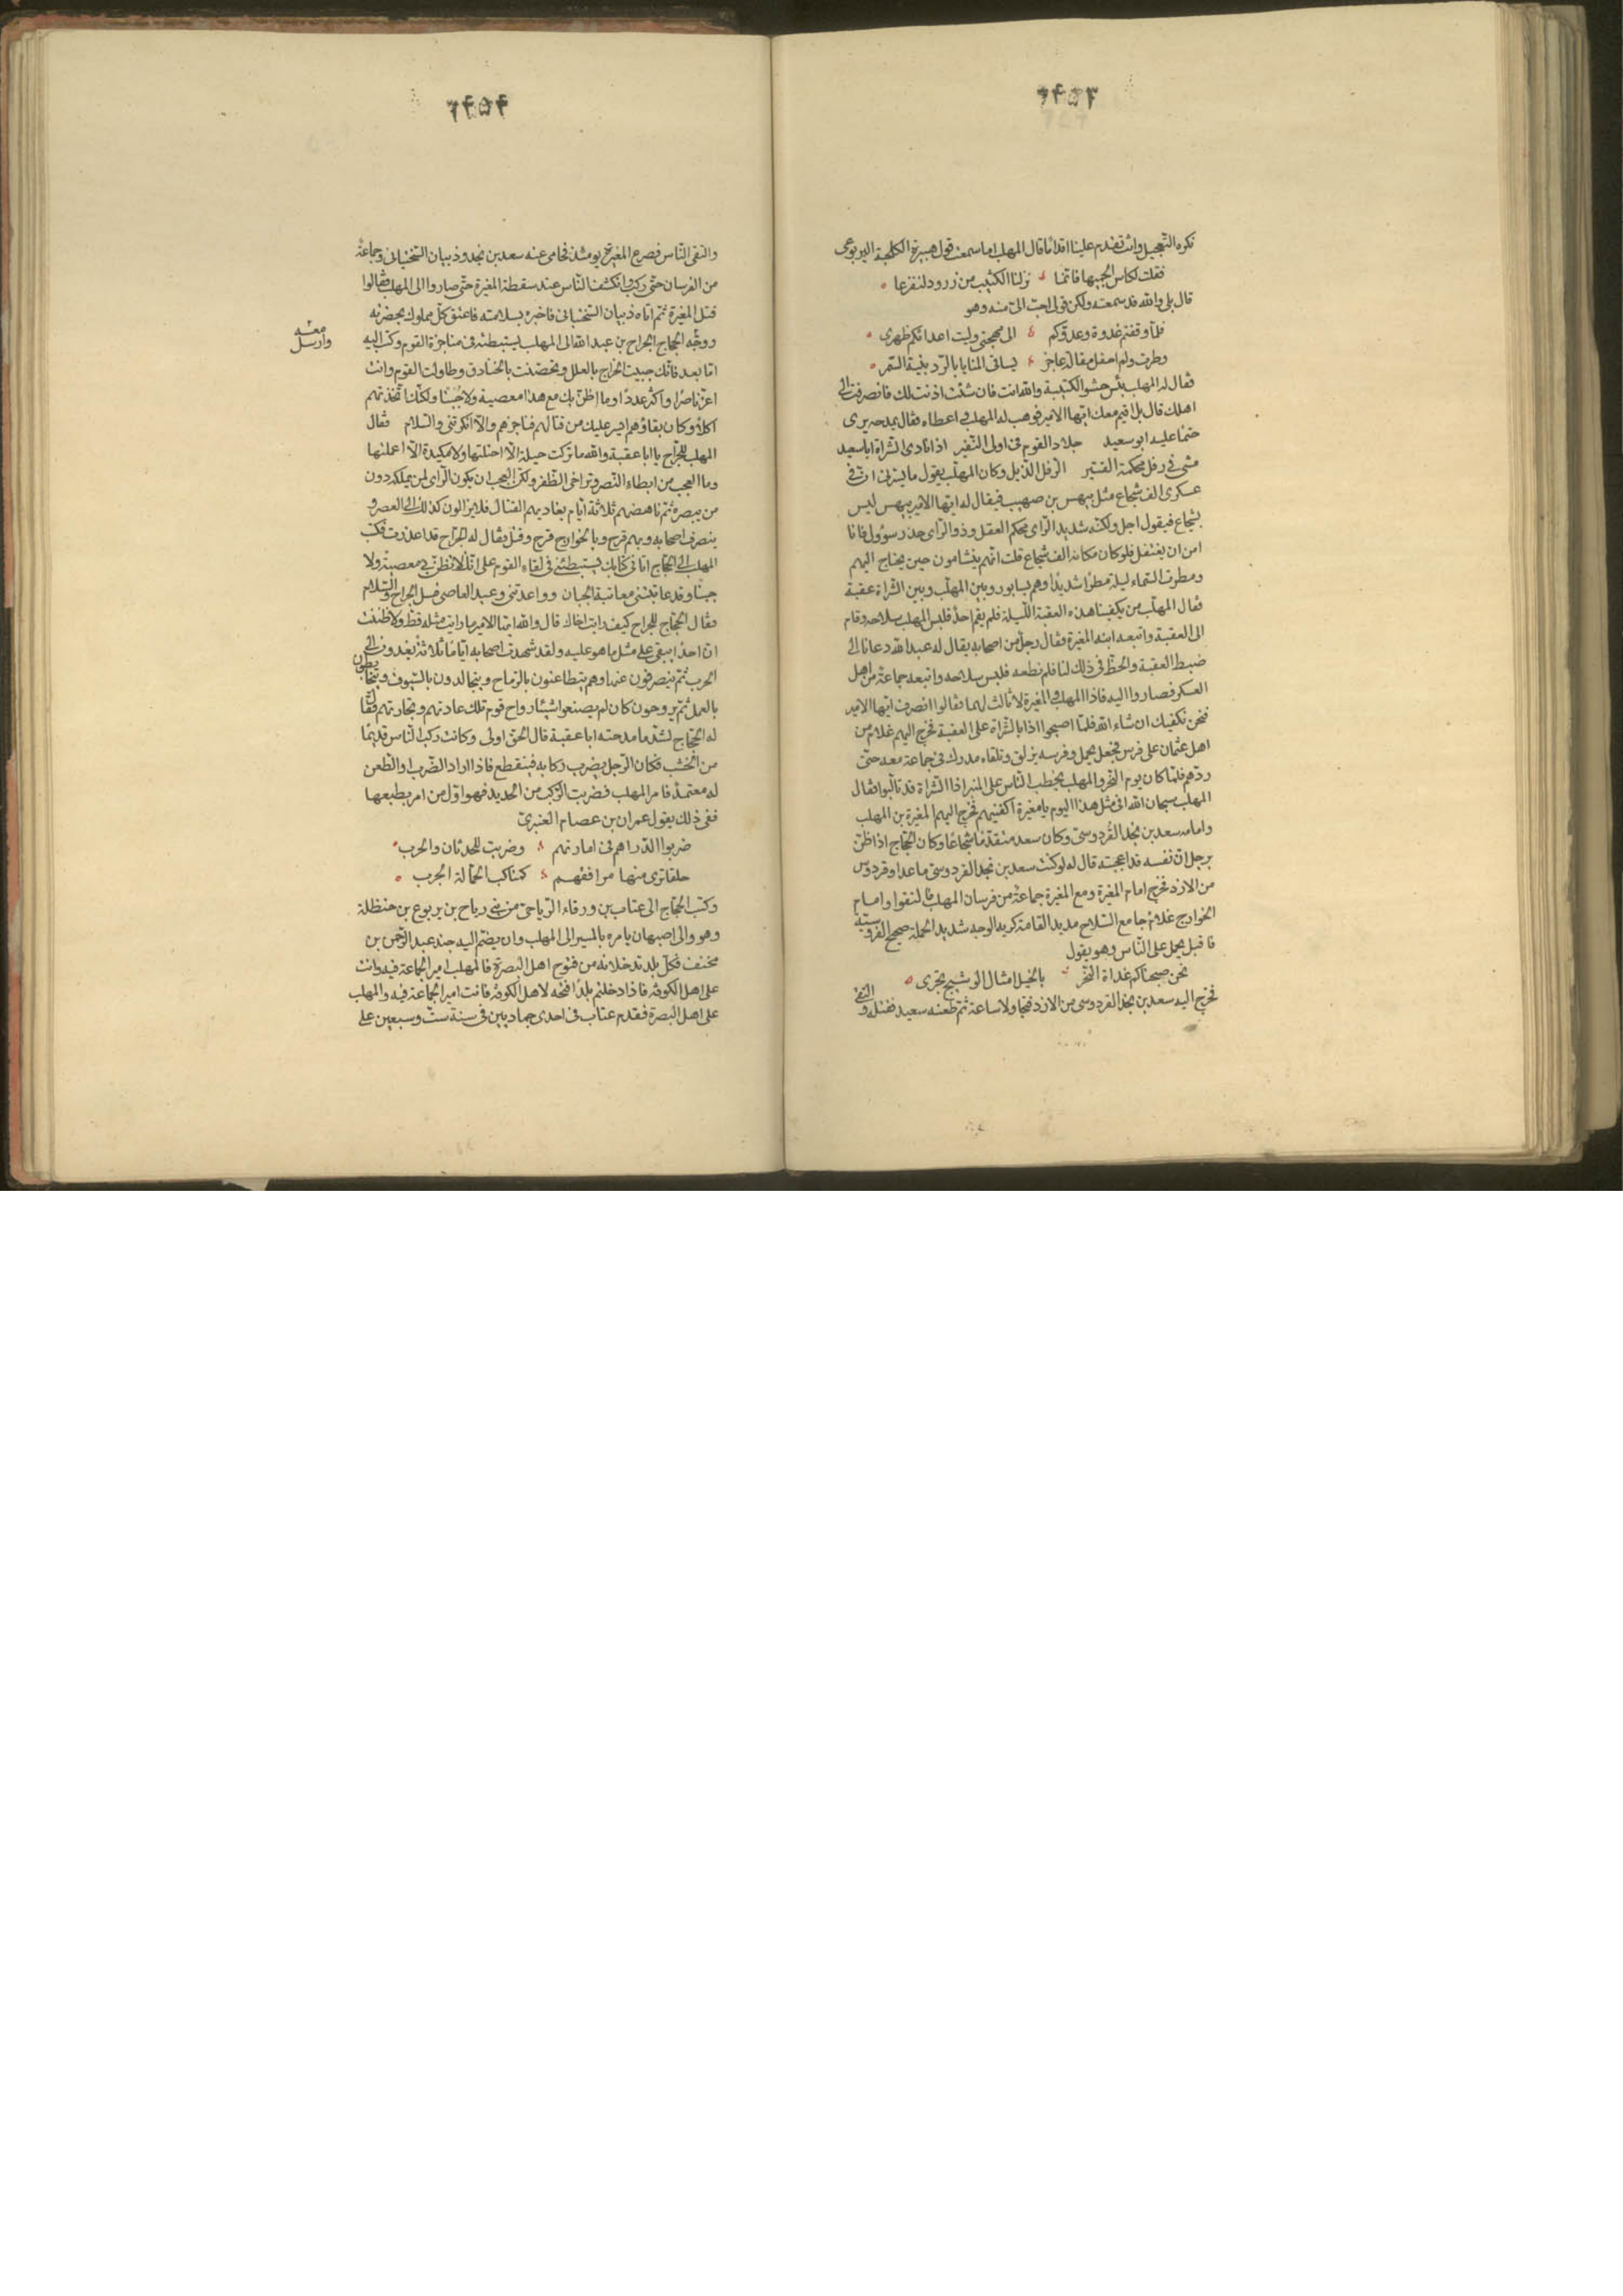 ٦٤٥٣
تكره التعجيل وانت تقدم علينا اقداما قال المهلب اما سمعت قول هبيرة الكلحبة اليربوعى
فقلت لكاس الجميها فانما نزلنا الكثيب من زرود لنفزعا
قال بلى والله قد سمعته ولكن قولى احب الى منه وهو
فلما وقفتم غدوة وعدوكم الى مهجتى وليت اعدائكم ظهرى
وطرت ولم احفل مقالة عاجز يساقى المنايا بالردينية السمر
فقال له المهلب بئس حشو الكتيبة والله انت فان شئت اذنت لك فانصرفت الى
اهلك قال بل اقيم معك ايها الامير فوهب له المهلب و اعطاه فقال يمدحه يرى
حتما عليه ابو سعيد جلاد القوم فى اولى النفير اذا نادى الشراة ابا سعيد
مشى فى رفل محكمة القتير الرفل الذيل وكان المهلب يقول ما يسرنى ان فى
عسكرى الف شجاع مثل بيهس بن صهيب فيقال له ايها الامير بيهس ليس
بشجاع فيقول اجل ولكنه شديد الراى محكم العقل وذو الراى حذر سؤول فانا
امن ان يغتفل فلو كان مكانه الف شجاع قلت انهم ينشامون حين يحتاج اليهم
ومطرت السماء ليلة مطرا شديدا وهم بسابور وبين المهلب وبين الشراة عقبة
فقال المهلب من يكفينا هذه العقبة الليلة فلم يقم احد فلبس المهلب سلاحه وقام
الى العقبة واتبعه ابنه المغيرة فقال رجل من اصحابه يقال له عبد الله دعانا الى
ضبط العقبة والحظ فى ذلك لنا فلم نطعه فلبس سلاحه واتبعه جماعة من اهل
العسكر فصاروا اليه فاذا المهلب والمغيرة لا ثالث لهما فقالوا انصرف ايها الامير
فنحن نكفيك ان شاء الله فلما اصبحوا اذا بالشراة على العقبة فخرج اليهم غلام من
اهل عثمان على فرس فجعل يحمل وفرسه يزلق وتلقاه مدرك فى جماعة معه حتى
ردهم فلما كان يوم النحر والمهلب يخطب الناس على المنبر اذا الشراة قد تالبوا فقال
المهلب سبحان الله افى مثل هذا اليوم يا مغيرة اكفنيهم فخرج اليهم المغيرة بن المهلب
وامامه سعد بن نجد القردوسى وكان سعد متقدما شجاعا وكان الحجاج اذا ظن
برجل ان نفسه قد اعجبته قال له لو كنت سعد بن نجد القردوسى ما عدا وقردوس
من الازد فخرج امام المغيرة ومع المغيرة جماعة من فرسان المهلب فالتقوا وامام
الخوارج غلام جامع السلاح مديد القامة كريه الوجه شديد الحملة صحيح الفروسية
فاقبل يحمل على الناس وهو يقول
نحن صبحناكم غداة النحر بالخيل امثال الوشيج تجرى
فخرج اليه سعد بن نجد القردوسى من الازد فتجاولا ساعة ثم طعنه سعيد فقتله و
التقى
٦٤٥٤
والتقى الناس فصرع المغيرة يومئذ فحامى عنه سعد بن نجد وذبيان السختيانى وجماعة
من الفرسان حتى ركب وانكشف الناس عند سقطة المغيرة حتى صاروا الى المهلب فقالوا
قتل المغيرة ثم اتاه ذبيان السختيانى فاخبره بسلامته فاعتق كل مملوك بحضرته
ووجه الحجاج الجراح بن عبد الله الى المهلب يستبطئه فى مناجزة القوم وكتب اليه
معه
وارسل
اما بعد فانك جبيت الخراج بالعلل وتحصنت بالخنادق وطاولت القوم وانت
اعز ناصرا واكثر عددا وما اظن بك مع هذا معصية ولا جبنا ولكنك اتخذتهم
اكلا وكان بقاؤهم ايسر عليك من قتالهم فناجزهم والا انكرتنى والسلام فقال
المهلب للجراح يا ابا عقبة والله ما تركت حيلة الا احتلتها ولا مكيدة الا اعملتها
وما العجب من ابطاء النصر وتراخى الظفر ولكن العجب ان يكون الراى لمن يملكه دون
من يبصره ثم ناهضهم ثلاثة ايام يغاديهم القتال فلا يزالون كذلك الى العصر و
ينصرف اصحابه وبهم قرح وبالخوارج قرح وقتل فقال له الجراح قد اعذرت فكتب
المهلب الى الحجاج اتانى كتابك تستبطئنى فى لقاء القوم على انك لا تظن بى معصية ولا
جبنا وقد عاتبتنى معاتبة الجبان وواعدتنى وعيد العاصى فسل الجراح والسلام
فقال الحجاج للجراح كيف رايت اخاك قال والله ايها الامير ما رايت مثله قط ولا ظننت
ان احدا يبقى على مثل ما هو عليه ولقد شهدت اصحابه اياما ثلاثة يغدون الى
الحرب ثم ينصرفون عنها وهم يتطاعنون بالرماح ويتجالدون بالسيوف ويتخابطون
بالعمل ثم يروحون كان لم يصنعوا شيئا رواح قوم تلك عادتهم وتجارتهم فقال
له الحجاج لشد ما مدحته ابا عقبة قال الحق اولى وكانت ركب الناس قديما
من الخشب فكان الرجل يضرب ركابه فينقطع فاذا اراد الضرب والطعن
له معتمد فامر المهلب فضربت الركب من الحديد فهو اول من امر بطبعها
ففى ذلك يقول عمران بن عصام العنزى
ضربوا الدراهم فى امارتهم وضربت للحدثان والحرب
حلقا ترى منها مرافقهم كمناكب الجمالة الجرب
وكتب الحجاج الى عتاب بن ورقاء الرياحى من بنى رياح بن يربوع بن حنظلة
وهو والى اصبهان يامره بالمسير الى المهلب وان يضم اليه جند عبد الرحمن بن
مخنف فكل بلد تدخلانه من فتوح اهل البصرة فالمهلب امير الجماعة فيه وانت
على اهل الكوفة فاذا دخلتم بلدا فتحه لاهل الكوفة فانت امير الجماعة فيه والمهلب
على اهل البصرة فقدم عتاب فى احدى جماديين فى سنة ست وسبعين على